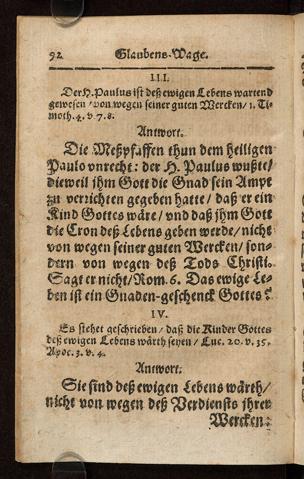 92 Glaubens-Wage.
III.
Der H. Paulus ist deß ewigen Lebens wartend
gewesen / von wegen seiner guten Wercken / 1. Ti-
moth. 4. v. 7. 8.
Antwort.
Die Meßpfaffen thun dem heiligen
Paulo vnrecht: der H. Paulus wußte /
dieweil jhm Gott die Gnad sein Ampt
zu verzichten gegeben hatte / daß er ein
Kind Gottes wäre / vnd daß jhm Gott
die Cron deß Lebens geben werde / nicht
von wegen seiner guten Wercken / son-
dern von wegen deß Tods Christi.
Sagt er nicht / Rom. 6. Das ewige Le-
ben ist ein Gnaden-geschenck Gottes?
IV.
Es stehet geschrieben / daß die Kinder Gottes
deß ewigen Lebens wärth seyen / Luc. 20. v. 35.
Apoc. 3. v. 4.
Antwort.
Sie sind deß ewigen Lebens wärth /
nicht von wegen deß Verdiensts jhrer
Wercken: